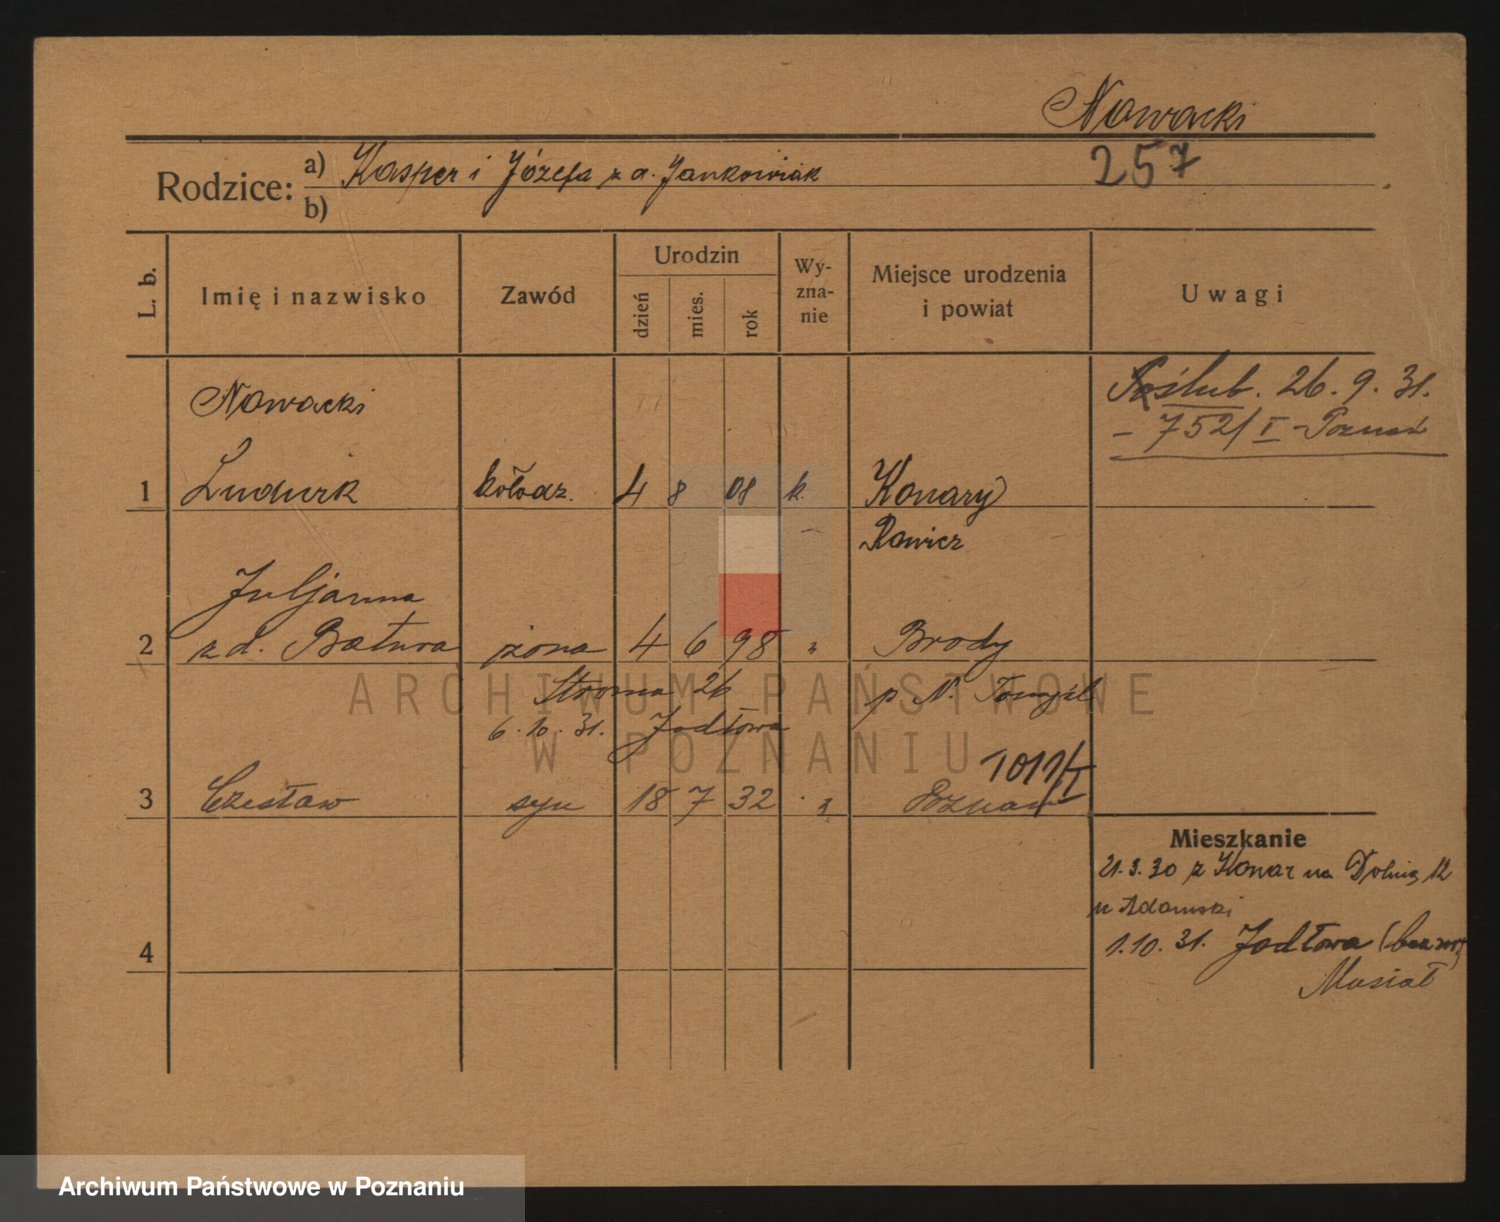 Nowacki
257
Rodzice: a) Kasper i Józefa z d. Jankowiak
b)
L. b.
Imię i nazwisko
Zawód
Urodzin
dzień
mies.
rok
Wy-
zna-
nie
Miejsce urodzenia
i powiat
Uwagi
Nowacki
1 Ludwik kołodz. 4 8 08 k. Konary
Rawicz
ślub. 26.9.31.
– 752/I – Poznań
Juljanna
2 z d. Batura żona 4 6 98 " Brody
Stroma 26 p. N. Tomyśl
6.10.31. Jodłowa
1011/I
3 Czesław syn 18 7 32 " Poznań
Mieszkanie
21.3.30 z Konar na Dolną 12
u Adamski
1.10.31. Jodłowa
Musiał
4
ARCHIWUM PAŃSTWOWE
W POZNANIU
Archiwum Państwowe w Poznaniu